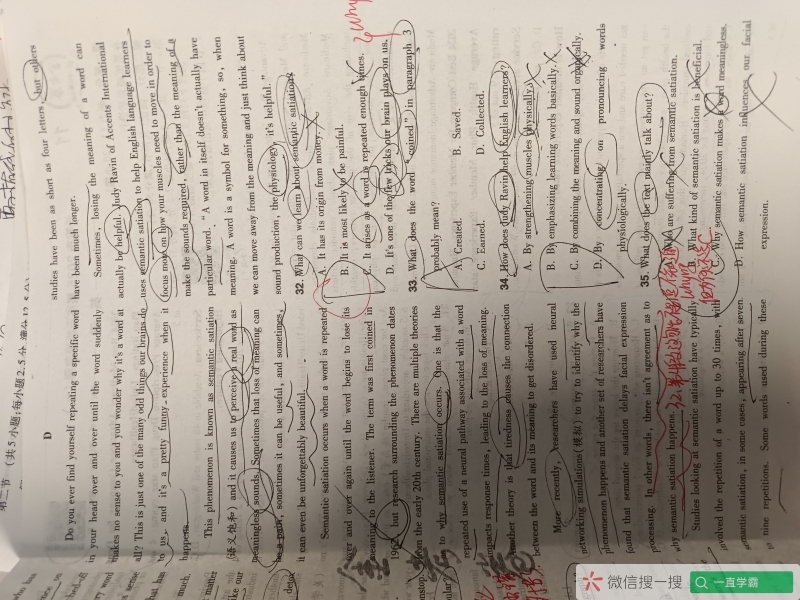 第二节 （共5小题;每小题2.5分 满分12.5分）
D
Do you ever find yourself repeating a specific word
in your head over and over until the word suddenly
makes no sense to you and you wonder why it's a word at
all? This is just one of the many odd things our brains do
to us, and it's a pretty funny experience when it
happens.
This phenomenon is known as semantic satiation
(语义饱和) and it causes us to perceive a real word as
meaningless sounds. Sometimes that loss of meaning can
be a pain, sometimes it can be useful, and sometimes,
it can even be unforgettably beautiful.
Semantic satiation occurs when a word is repeated
over and over again until the word begins to lose its
meaning to the listener. The term was first coined in
but research surrounding the phenomenon dates
from the early 20th century. There are multiple theories
to why semantic satiation occurs. One is that the
repeated use of a neural pathway associated with a word
impacts response times, leading to the loss of meaning.
Another theory is that tiredness causes the connection
between the word and its meaning to get disordered.
More recently, researchers have used neural
networking simulations(模拟) to try to identify why the
phenomenon happens and another set of researchers have
found that semantic satiation delays facial expression
processing. In other words, there isn't agreement as to
why semantic satiation happens.
Studies looking at semantic satiation have typically
involved the repetition of a word up to 30 times, with
semantic satiation, in some cases, appearing after seven
to nine repetitions. Some words used during these
studies have been as short as four letters, but others
have been much longer.
Sometimes, losing the meaning of a word can
actually be helpful. Judy Ravin of Accents International
uses semantic satiation to help English language learners
focus more on how your muscles need to move in order to
make the sounds required, rather than the meaning of a
particular word. "A word in itself doesn't actually have
meaning. A word is a symbol for something, so, when
we can move away from the meaning and just think about
sound production, the physiology, it's helpful."
32. What can we learn about semantic satiation?
A. It has its origin from motley.
B. It is most likely to be painful.
C. It arises as a word is repeated enough times.
D. It's one of the few tricks our brain plays on us.
33. What does the word "coined" in paragraph 3
probably mean?
A. Created.
B. Saved.
C. Earned.
D. Collected.
34. How does Judy Ravin help English learners?
A. By strengthening muscles physically.
B. By emphasizing learning words basically.
C. By combining the meaning and sound organically.
D. By concentrating on pronouncing words
physiologically.
35. What does the text mainly talk about?
A. Who are suffering from semantic satiation.
B. What kind of semantic satiation is beneficial.
C. Why semantic satiation makes a word meaningless.
D. How semantic satiation influences our facial
expression.
微信搜一搜
一直学霸